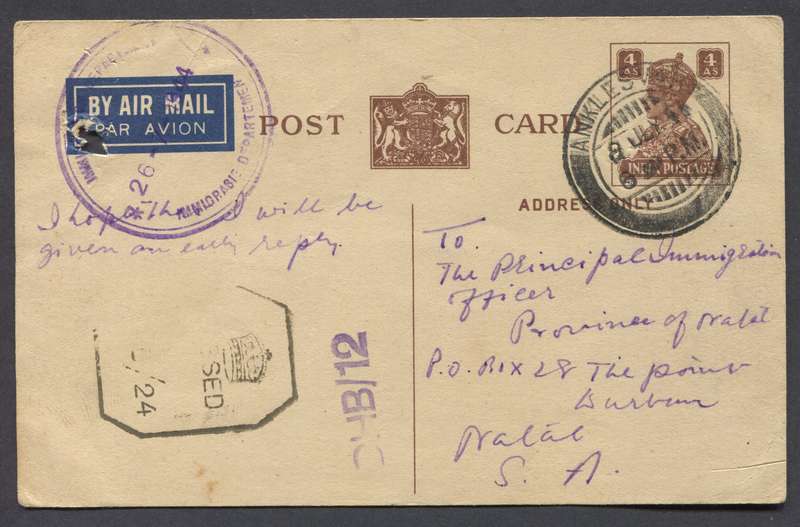 BY AIR MAIL
PAR AVION
POST CARD
4 AS 4 AS
INDIA POSTAGE
ANKLES
8 JU
P.M.
ADDRESS ONLY
26
IMMIGRASIE DEPARTEMEN
I hope that I will be
given an early reply.
To.
The Principal Immigration
officer
Province of Natal
P.O. Box 28 The point
Durban
Natal
S. A.
SED
/24
DHB/12